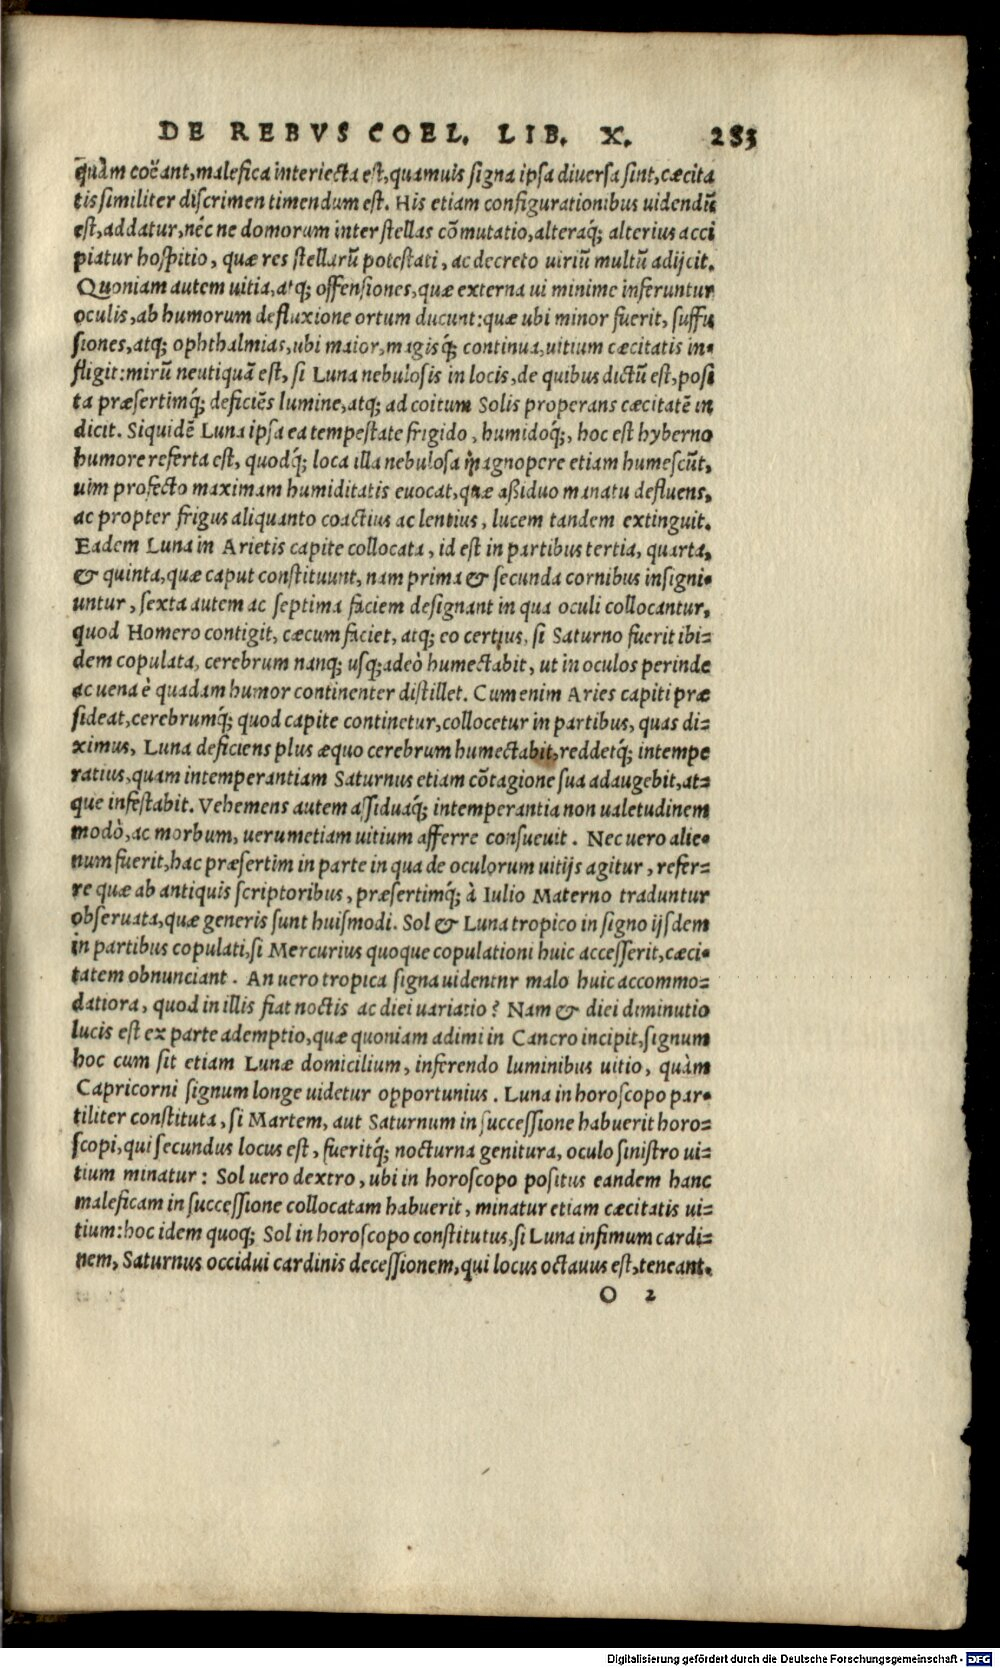 DE REBVS COEL. LIB. X. 283
quàm coëant, malefica interiecta est, quamuis signa ipsa diuersa sint, cæcita
tis similiter discrimen timendum est. His etiam configurationibus uidendũ
est, addatur, néc ne domorum inter stellas cõmutatio, alteraq́; alterius acci
piatur hospitio, quæ res stellarũ potestati, ac decreto uiriũ multũ adijcit.
Quoniam autem uitia, atq; offensiones, quæ externa ui minime inferuntur
oculis, ab humorum defluxione ortum ducunt: quæ ubi minor fuerit, suffu
siones, atq; ophthalmias, ubi maior, magisq́; continua, uitium cæcitatis in-
fligit: mirũ neutiquã est, si Luna nebulosis in locis, de quibus dictũ est, posi
ta præsertimq́; deficiẽs lumine, atq; ad coitum Solis properans cæcitatẽ in
dicit. Siquidẽ Luna ipsa ea tempestate frigido, humidoq́;, hoc est hyberno
humore referta est, quodq́; loca illa nebulosa magnopere etiam humescũt,
uim profecto maximam humiditatis euocat, quæ aßiduo manatu defluens,
ac propter frigus aliquanto coactius ac lentius, lucem tandem extinguit.
Eadem Luna in Arietis capite collocata, id est in partibus tertia, quarta,
& quinta, quæ caput constituunt, nam prima & secunda cornibus insigni-
untur, sexta autem ac septima faciem designant in qua oculi collocantur,
quod Homero contigit, cæcum faciet, atq; eo certius, si Saturno fuerit ibi-
dem copulata, cerebrum nanq; usq; adeò humectabit, ut in oculos perinde
ac uena è quadam humor continenter distillet. Cum enim Aries capiti præ
sideat, cerebrumq́; quod capite continetur, collocetur in partibus, quas di-
ximus, Luna deficiens plus æquo cerebrum humectabit, reddetq́; intempe
ratius, quam intemperantiam Saturnus etiam cõtagione sua adaugebit, at-
que infestabit. Vehemens autem assiduaq́; intemperantia non ualetudinem
modò, ac morbum, uerumetiam uitium afferre consueuit. Nec uero alie-
num fuerit, hac præsertim in parte in qua de oculorum uitijs agitur, refer-
re quæ ab antiquis scriptoribus, præsertimq́; à Iulio Materno traduntur
obseruata, quæ generis sunt huismodi. Sol & Luna tropico in signo ijsdem
in partibus copulati, si Mercurius quoque copulationi huic accesserit, cæci-
tatem obnunciant. An uero tropica signa uidentnr malo huic accommo-
datiora, quod in illis fiat noctis ac diei uariatio? Nam & diei diminutio
lucis est ex parte ademptio, quæ quoniam adimi in Cancro incipit, signum
hoc cum sit etiam Lunæ domicilium, inferendo luminibus uitio, quàm
Capricorni signum longe uidetur opportunius. Luna in horoscopo par-
tiliter constituta, si Martem, aut Saturnum in successione habuerit horo-
scopi, qui secundus locus est, fueritq́; nocturna genitura, oculo sinistro ui-
tium minatur: Sol uero dextro, ubi in horoscopo positus eandem hanc
maleficam in successione collocatam habuerit, minatur etiam cæcitatis ui-
tium: hoc idem quoq; Sol in horoscopo constitutus, si Luna infimum cardi-
nem, Saturnus occidui cardinis decessionem, qui locus octauus est, teneant.
O 2
Digitalisierung gefördert durch die Deutsche Forschungsgemeinschaft - DFG